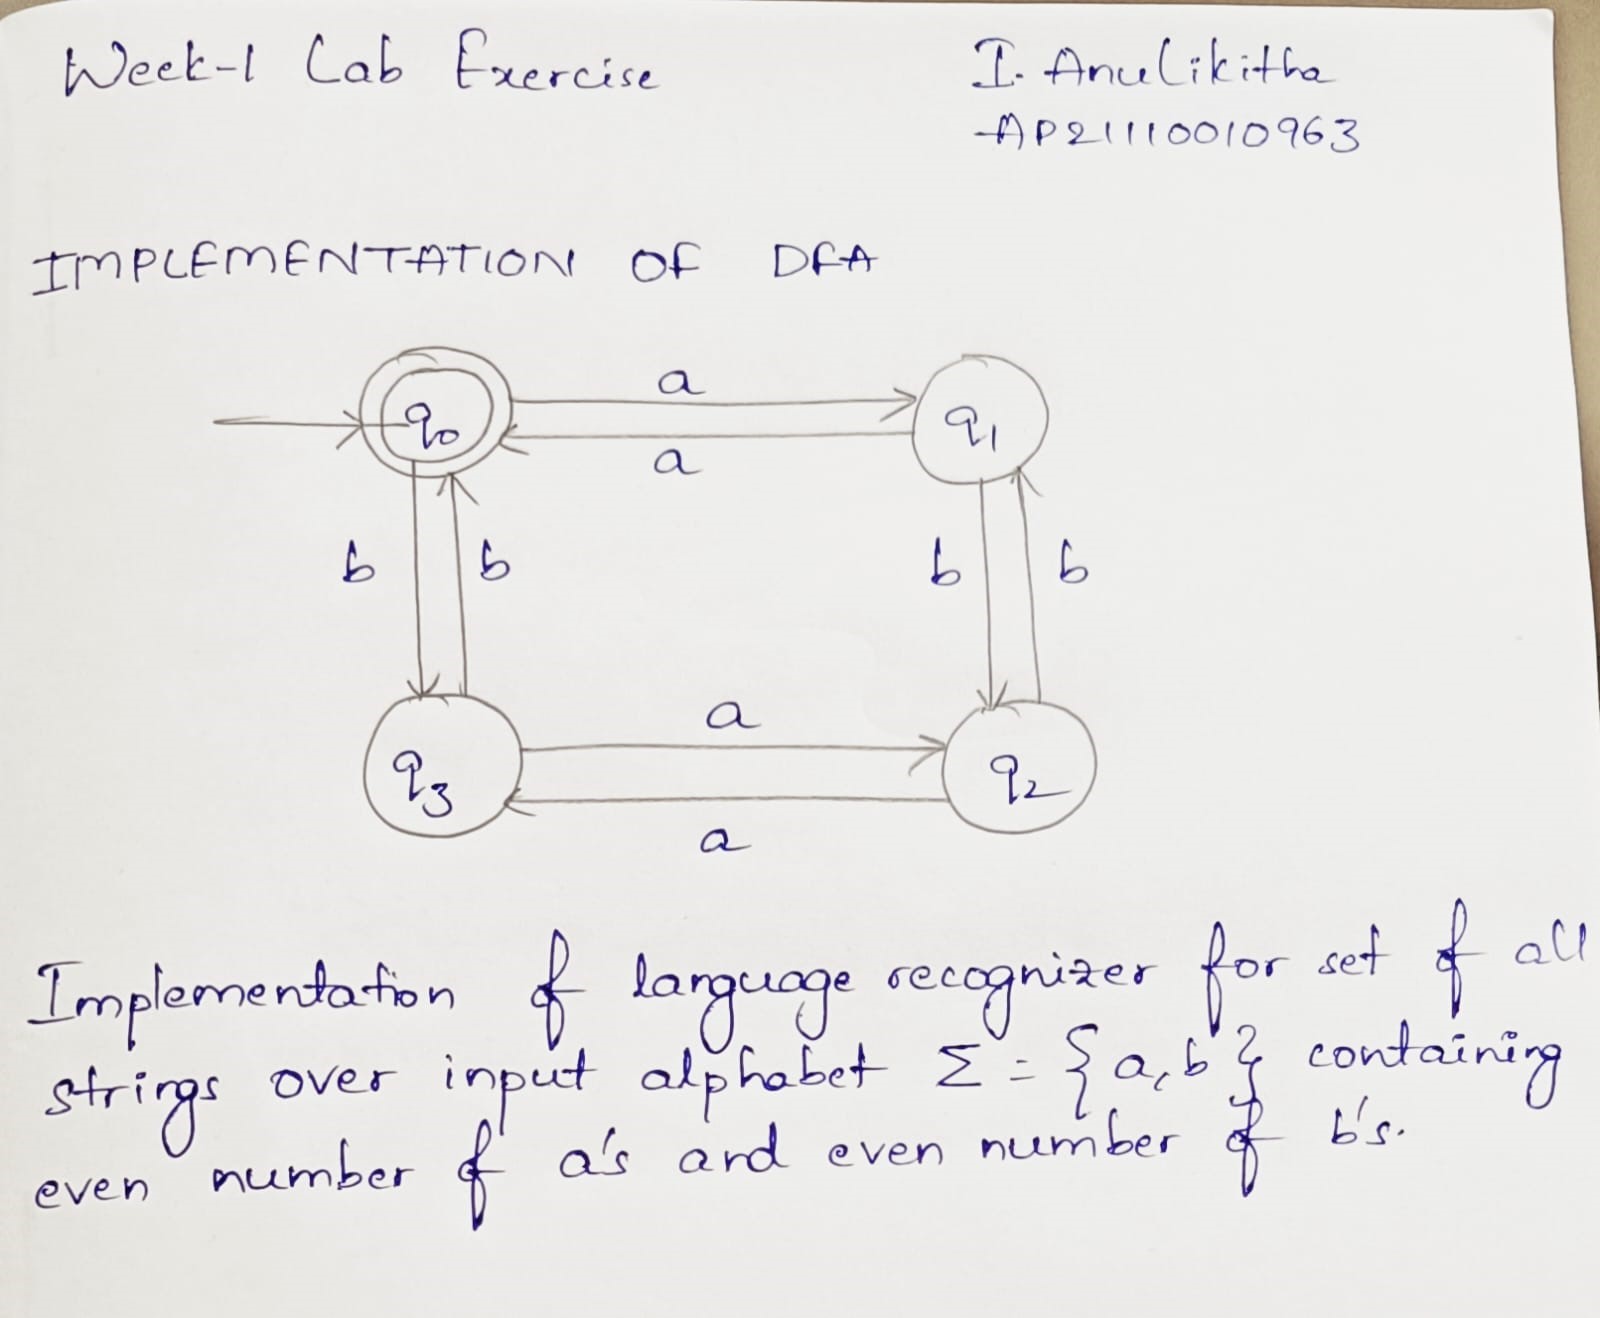 Week-1 Lab Exercise
I. Anu Likitha
AP21110010963
IMPLEMENTATION OF DFA
a
q0 q1
a
b b b b
a
q3 q2
a
Implementation of language recognizer for set of all
strings over input alphabet Σ = {a, b} containing
even number of a's and even number of b's.